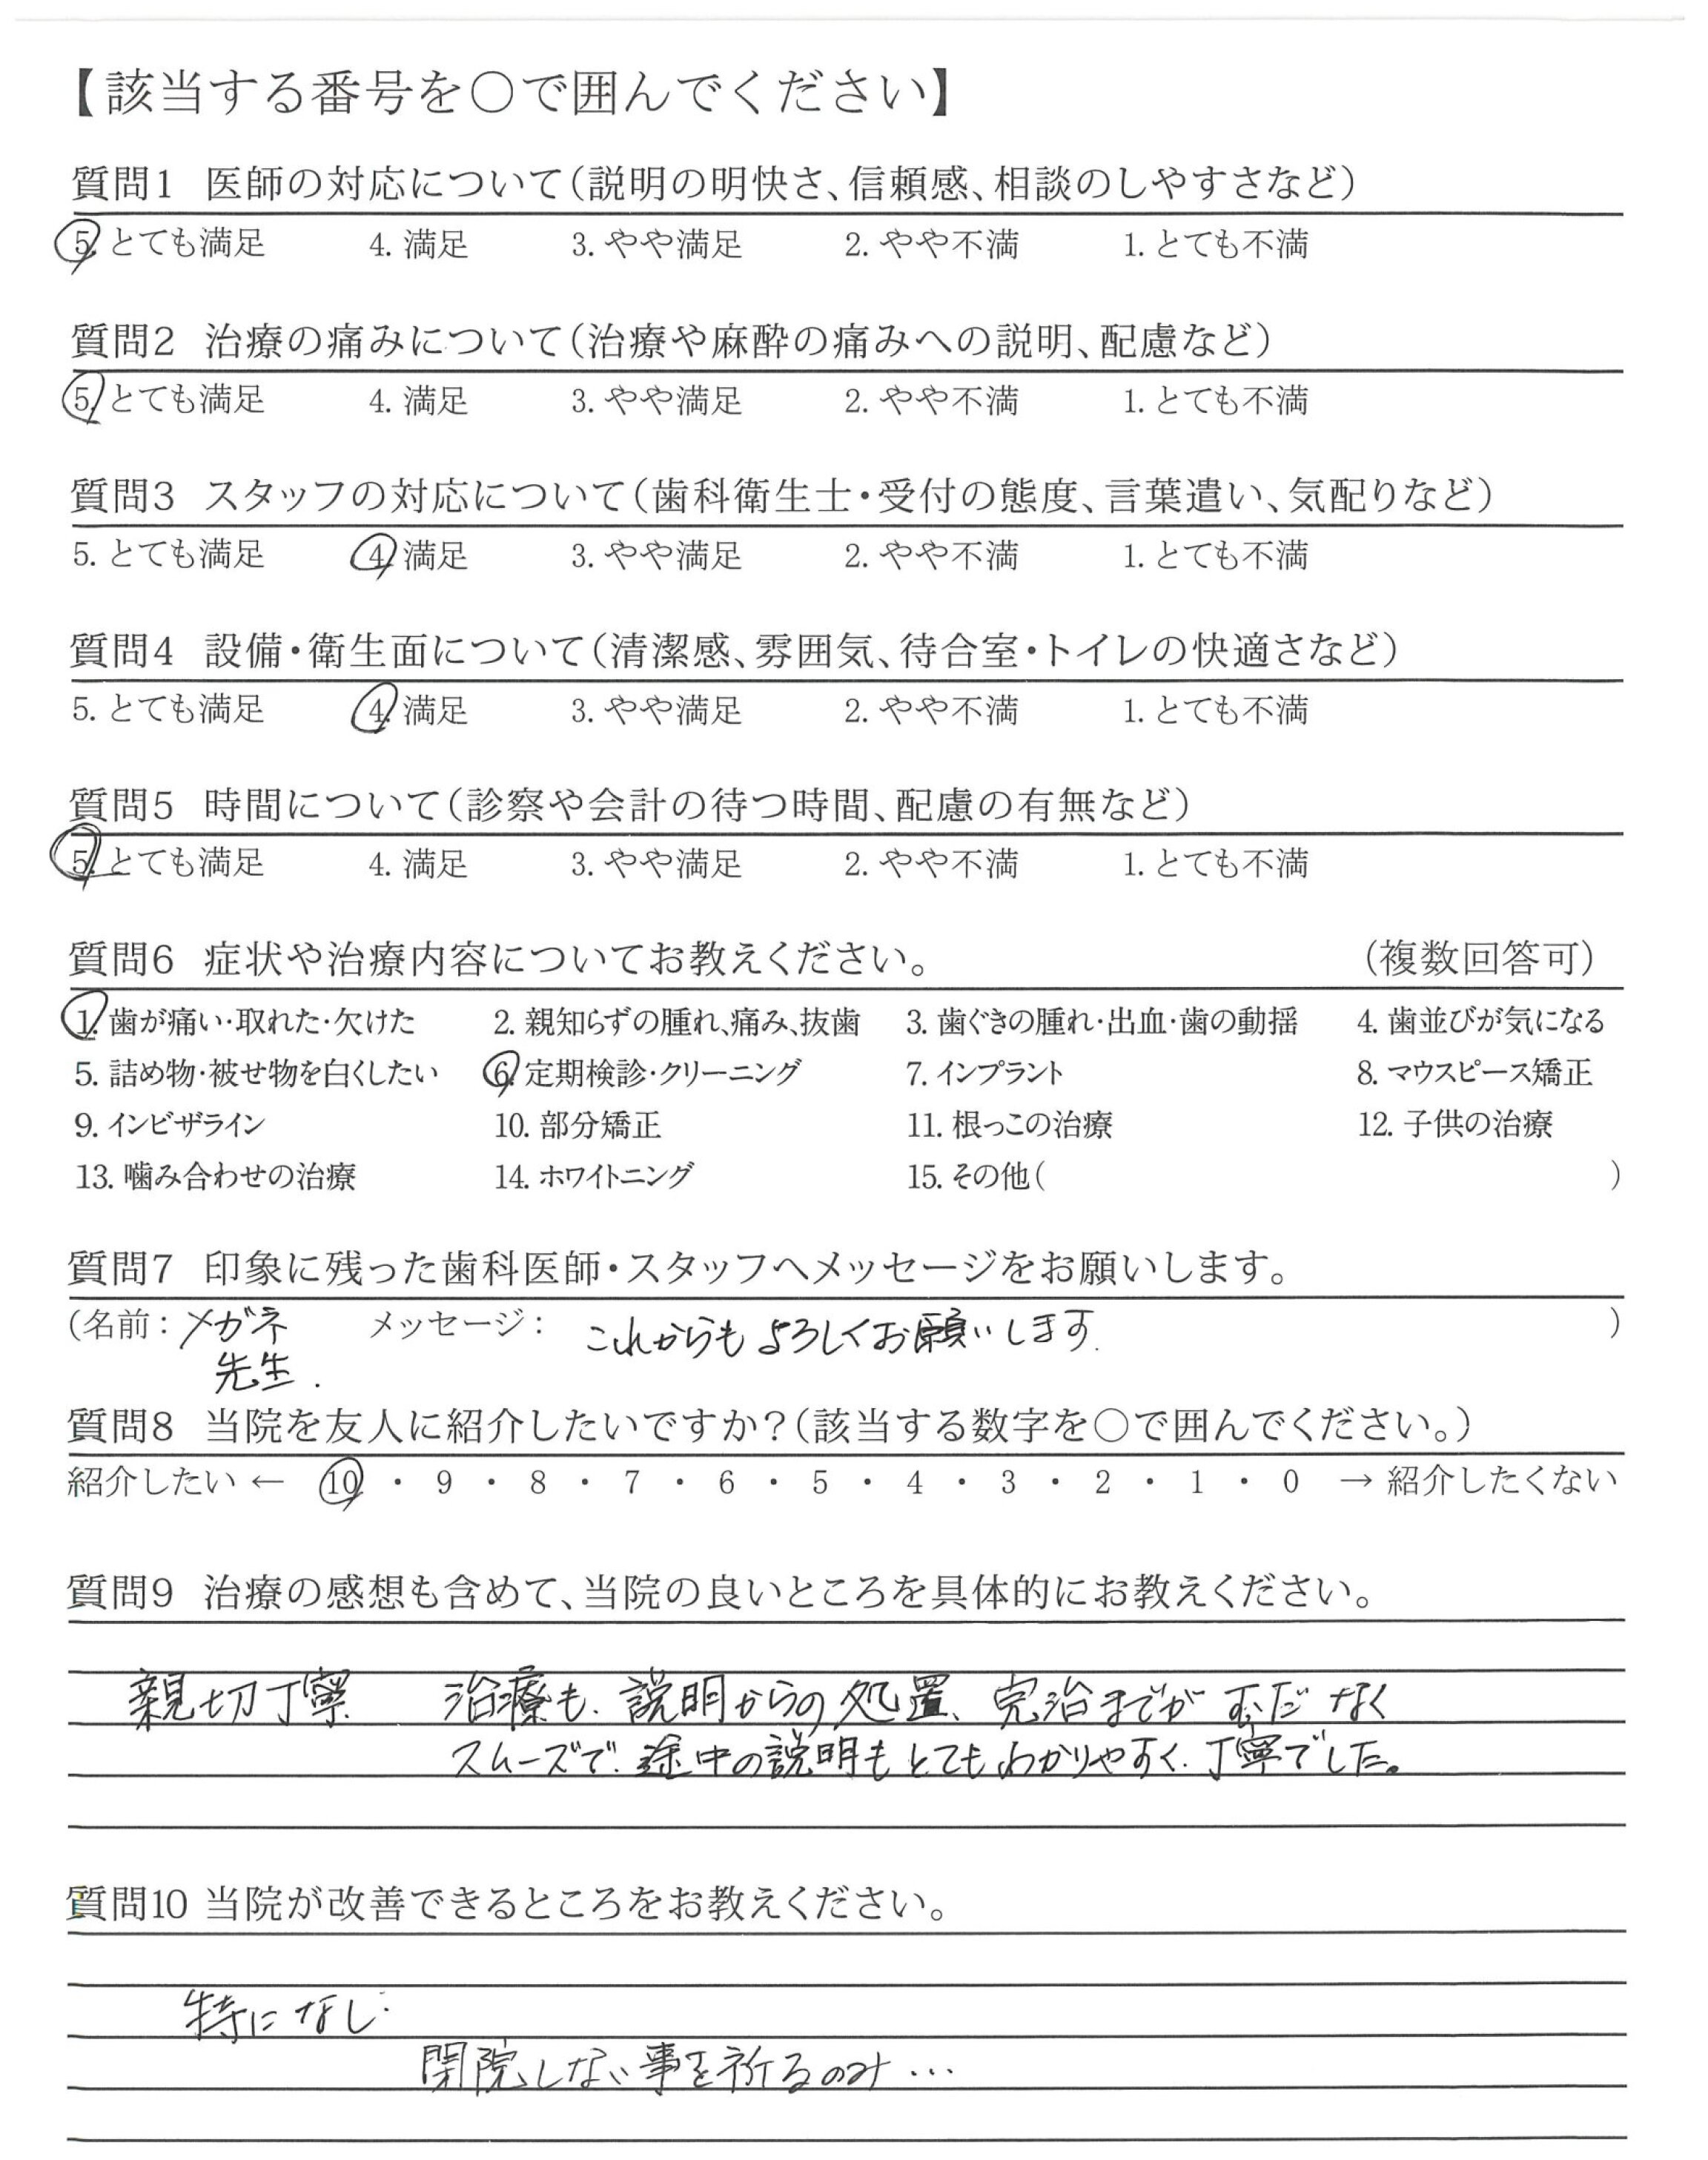 【該当する番号を○で囲んでください】
質問1 医師の対応について(説明の明快さ、信頼感、相談のしやすさなど)
5. とても満足 4. 満足 3. やや満足 2. やや不満 1. とても不満
質問2 治療の痛みについて(治療や麻酔の痛みへの説明、配慮など)
5. とても満足 4. 満足 3. やや満足 2. やや不満 1. とても不満
質問3 スタッフの対応について(歯科衛生士・受付の態度、言葉遣い、気配りなど)
5. とても満足 4. 満足 3. やや満足 2. やや不満 1. とても不満
質問4 設備・衛生面について(清潔感、雰囲気、待合室・トイレの快適さなど)
5. とても満足 4. 満足 3. やや満足 2. やや不満 1. とても不満
質問5 時間について(診察や会計の待つ時間、配慮の有無など)
5. とても満足 4. 満足 3. やや満足 2. やや不満 1. とても不満
質問6 症状や治療内容についてお教えください。 (複数回答可)
1. 歯が痛い・取れた・欠けた 2. 親知らずの腫れ、痛み、抜歯 3. 歯ぐきの腫れ・出血・歯の動揺 4. 歯並びが気になる
5. 詰め物・被せ物を白くしたい 6. 定期検診・クリーニング 7. インプラント 8. マウスピース矯正
9. インビザライン 10. 部分矯正 11. 根っこの治療 12. 子供の治療
13. 噛み合わせの治療 14. ホワイトニング 15. その他( )
質問7 印象に残った歯科医師・スタッフへメッセージをお願いします。
(名前：メガネ メッセージ： これからもよろしくお願いします. )
先生.
質問8 当院を友人に紹介したいですか？(該当する数字を○で囲んでください。)
紹介したい ← 10 ・ 9 ・ 8 ・ 7 ・ 6 ・ 5 ・ 4 ・ 3 ・ 2 ・ 1 ・ 0 → 紹介したくない
質問9 治療の感想も含めて、当院の良いところを具体的にお教えください。
親切丁寧. 治療も、説明からの処置、完治までがむだなく
スムーズで、途中の説明もとてもわかりやすく、丁寧でした。
質問10 当院が改善できるところをお教えください。
特になし.
閉院しない事を祈るのみ…